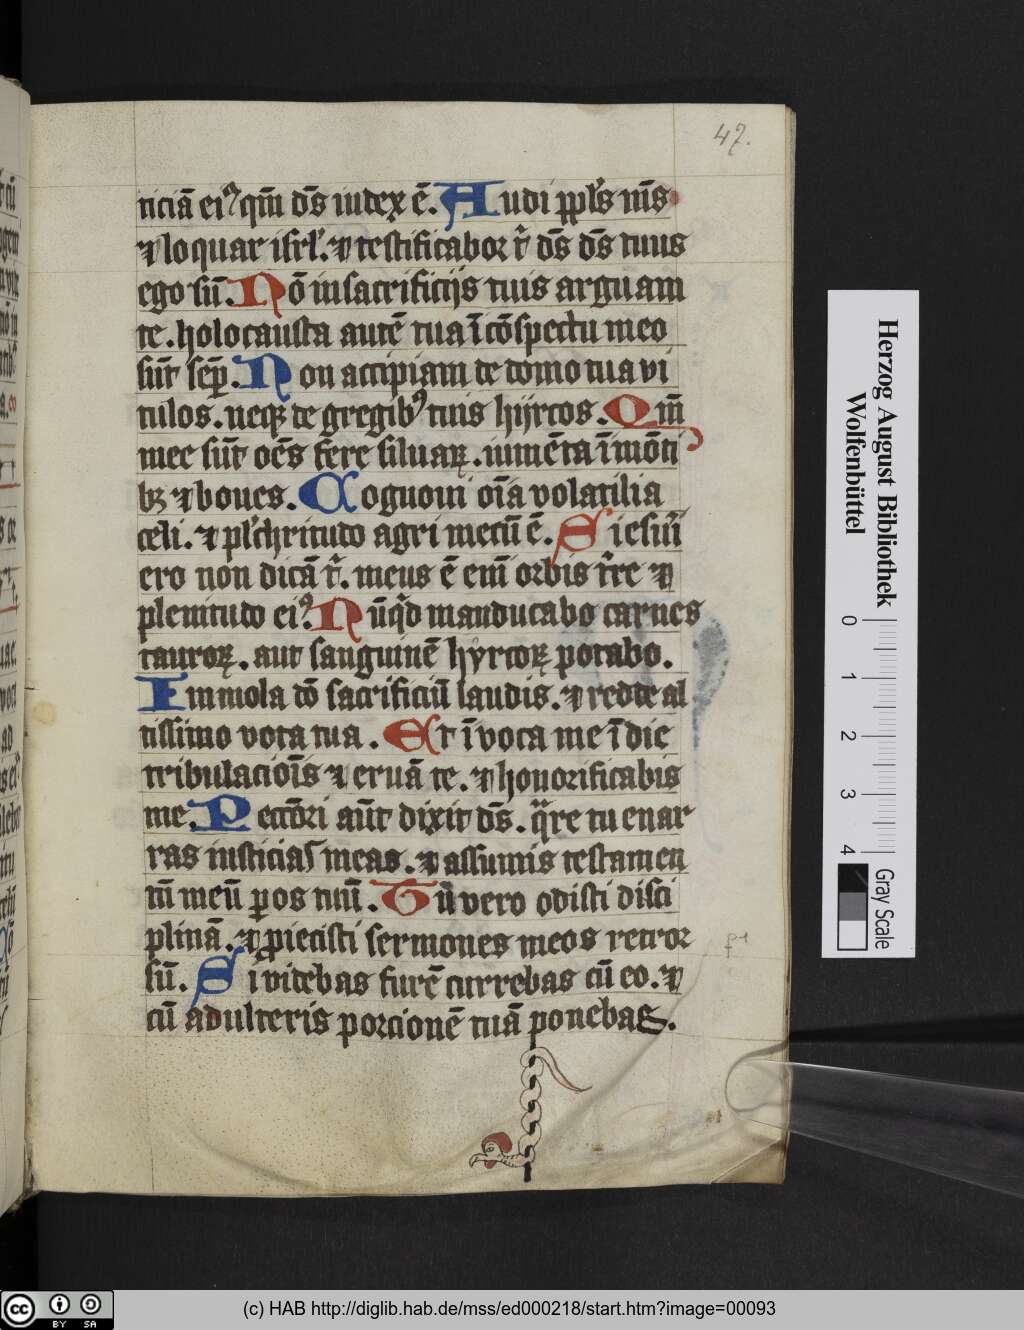 47.
ticiā ei⁹ qm̄ dn̄s iudex ē. Audi ppl's m̄s
⁊ loquar isrl'. ⁊ testificabor t̉ ds̄ ds̄ tuus
ego sū. Nō in sacrificijs tuis arguam
te. holocausta autē tua ī cōspectu meo
sūt sēp̲. Non accipiam de domo tua vi
tulos. neqꝫ de gregib⁹ tuis hijrcos. Qm̄
mee sūt oēs fere siluaꝝ. iumēta ī mōti
bꝫ ⁊ boues. Cognoui oīa volatilia
celi. ⁊ pl'chritudo agri mecū ē. Si esuri
ero non dicā t̉. meus ē eī orbis t̉re ⁊
plenitudo ei⁹. Nūq̇d manducabo carnes
tauroꝝ. aut sanguinē hyrcoꝝ potabo.
Immola dō sacrificiū laudis. ⁊ redde al
tissimo vota tua. Et īvoca me ī die
tribulacioīs ⁊ eruā te. ⁊ honorificabis
me. Peccōri aūt dixit ds̄. q̄re tu enar
ras iusticias meas. ⁊ assumis testamen
tū meū ꝑ os tuū. Tū vero odisti disci
plinā. ⁊ ꝓiecisti sermones meos retror
sū. Si videbas furē currebas cū eo. ⁊
cū adulteris porcionē tuā ponebas.
Herzog August Bibliothek
Wolfenbüttel
0 1 2 3 4
Gray Scale
cc BY SA
(c) HAB http://diglib.hab.de/mss/ed000218/start.htm?image=00093